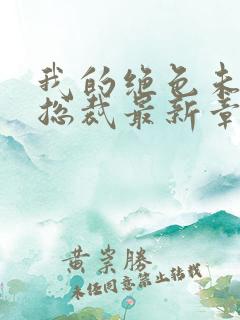 我的绝色未
总裁最新章
黄崇勝
未经同意禁止转载